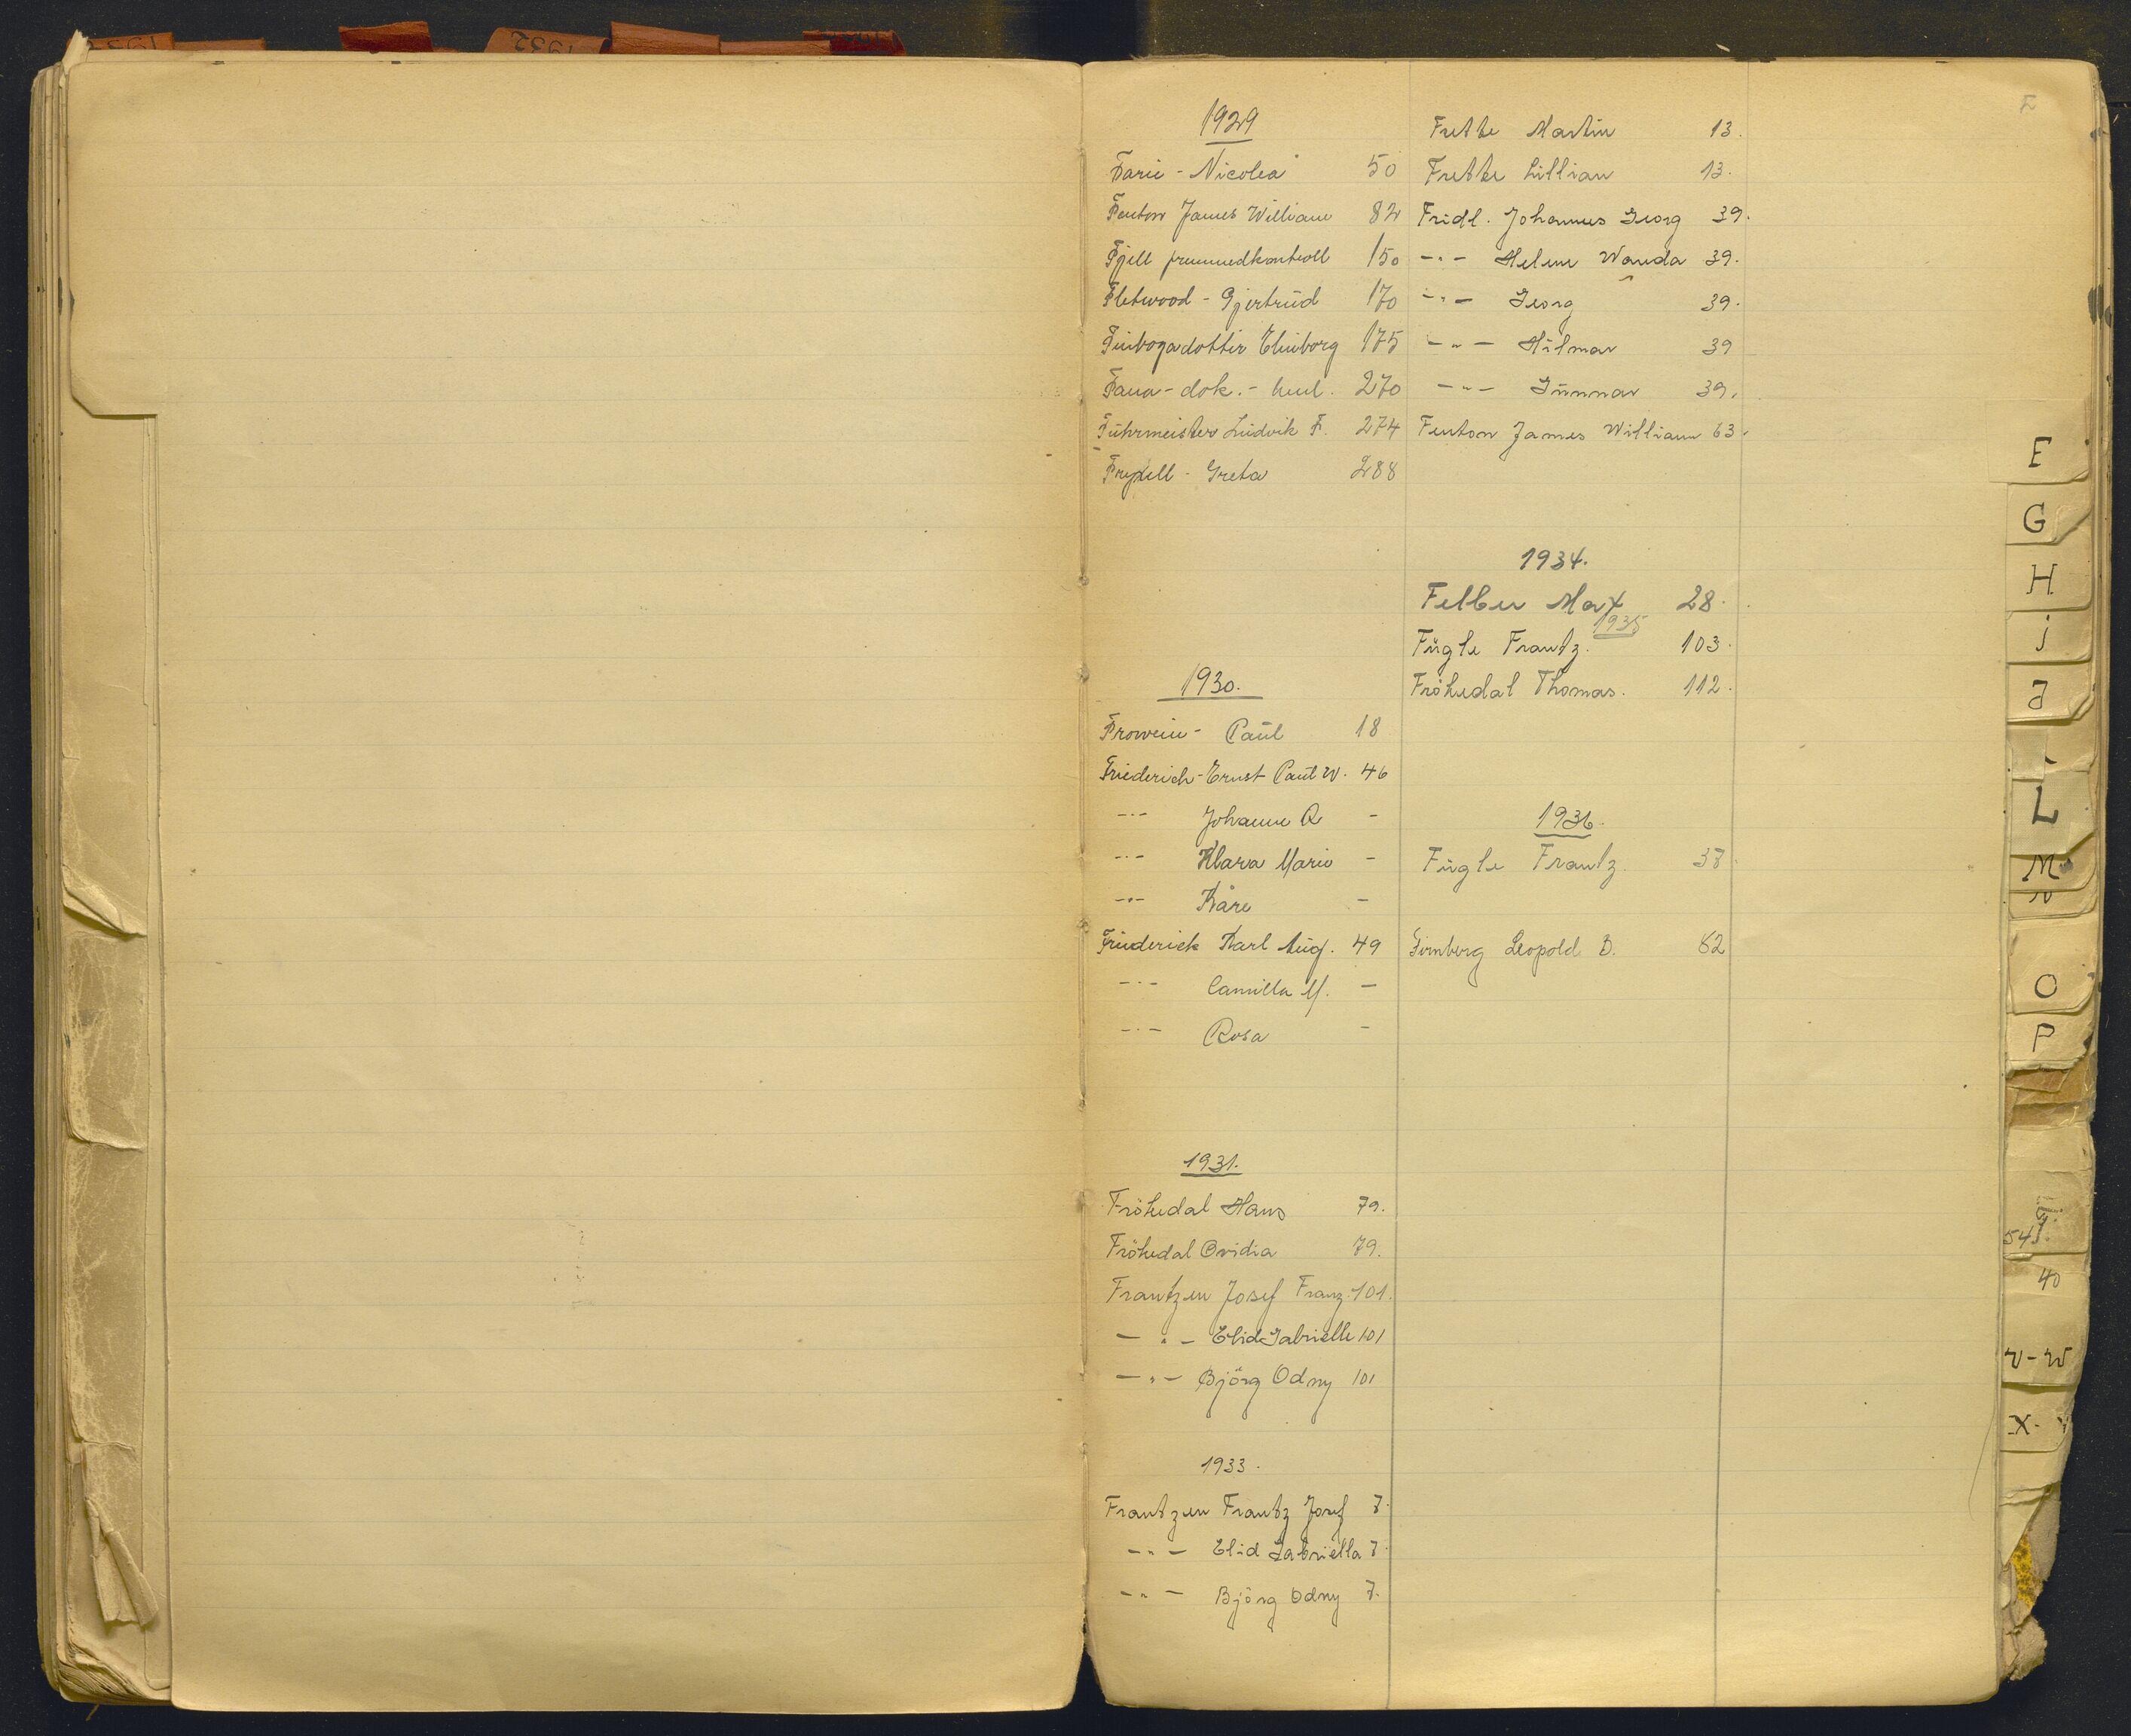 1929
Farie - Nicolea 50
Fenton James William 82
Fjell fremmedkontroll 150
Fletwood - Gjertrud 170
Finbogadottir Elinborg 175
Fana - dok. - 270
Führmeister Ludvik F. 274
Fryxell - Greta 288
1930.
Frowein - Paul 18
Friederich - Ernst Paul W. 46
-"- Johanne R -
-"- Klara Marie -
-"- Kåre -
Friederick Karl Aug. 49
-"- Camilla M. -
-"- Rosa -
1931.
Fröhedal Hans 79.
Fröhedal Ovidia 79.
Frantzen Josef Franz 101.
-"- Elid Gabrielle 101
-"- Björg Odny 101
1933.
Frantzen Frantz Josef 7.
-"- Elid Gabriella 7.
-"- Björg Odny 7.
Frette Martin 13.
Frette Lillian 13.
Fridl. Johannes Georg 39.
-"- Helene Wanda 39.
-"- Georg 39.
-"- Hilmar 39
-"- Gunnar 39.
Fenton James William 63.
1934.
Felber Max 28.
1935
Fügle Frantz. 103.
Fröhedal Thomas. 112.
1936.
Fügle Frantz. 38.
Firnberg Leopold D. 82
F
E
G
H
i
J
L
M
N
O
P
54
40
V-W
X-
1932